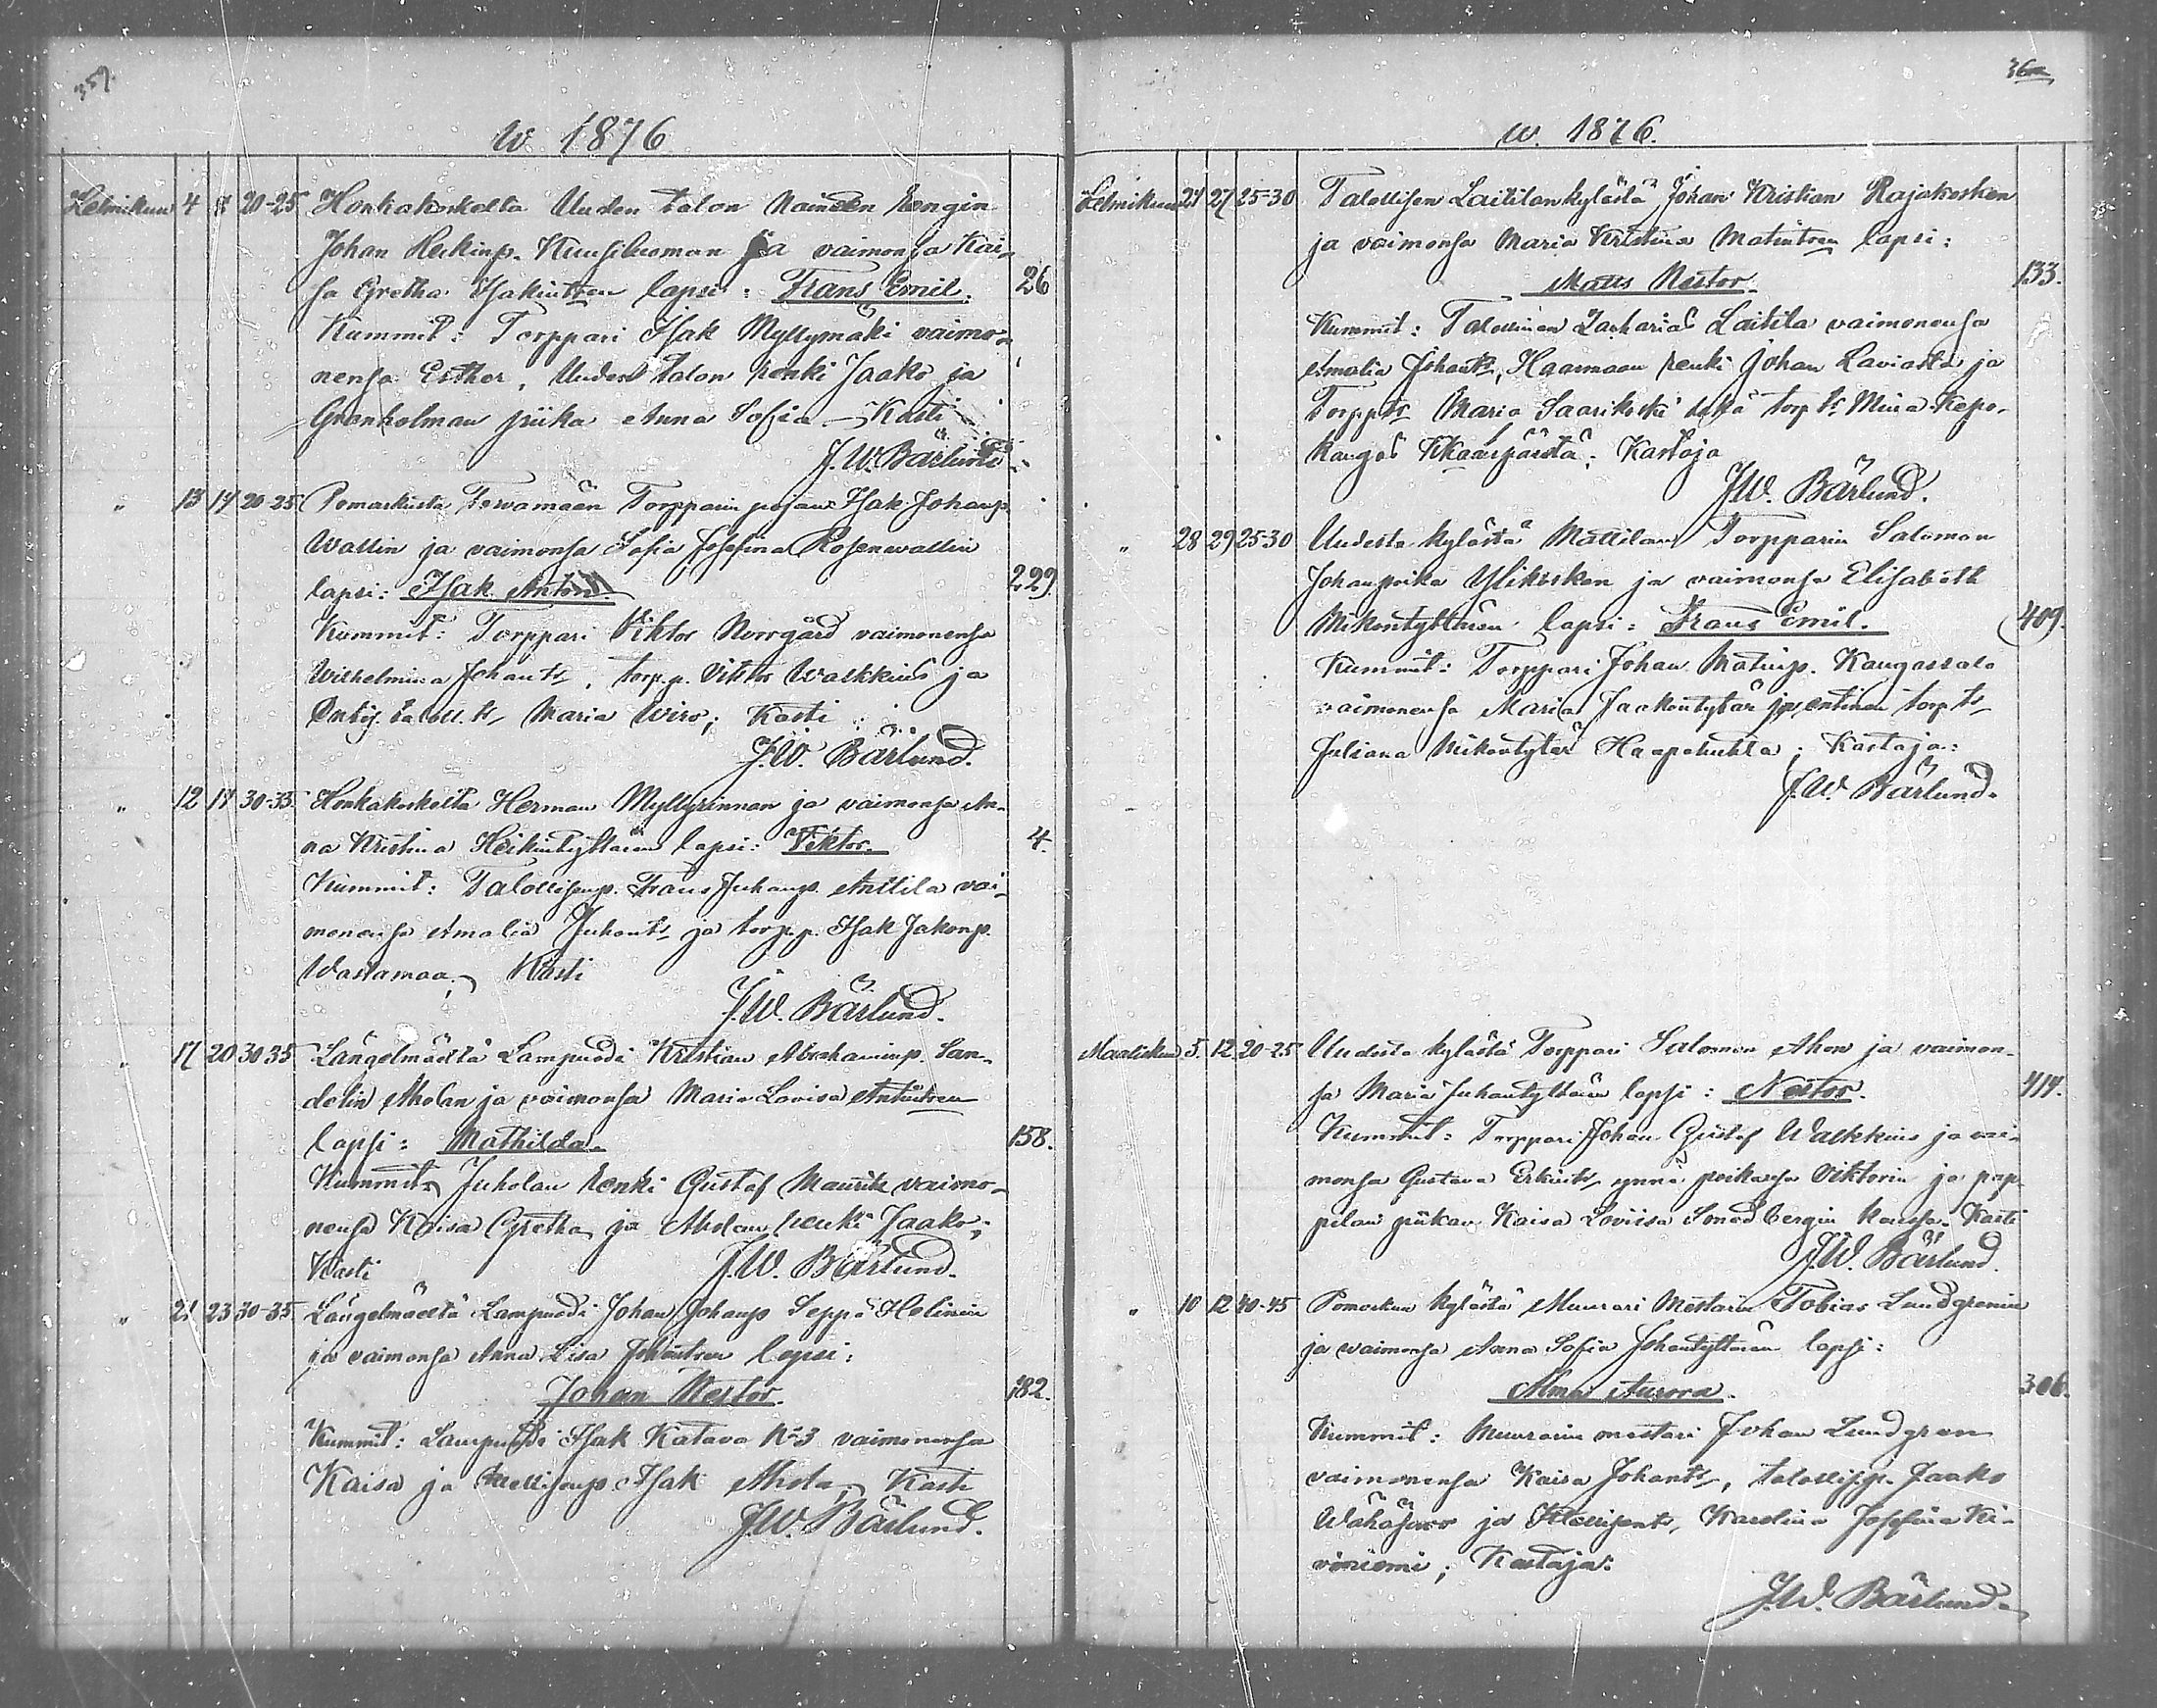 359.
w 1876
Helmikuun 4 8 20-25 Honkakoskelta Uuden talon Nainden Rengin
Johan Heikinp. Kuusiluoman ja vaimonsa Kai-
sa Gretha Isakintren lapsi: Frans Emil. 26
Kummit: Torppari Isak Myllymäki vaimo-
nensa Esther, Uuden talon renki Jaako ja
Grönholman piika Anna Sofia - Kasti
J.W. Bärlund
" 13 14 20-25 Pomarkusta Tervamään Torpparin pojan Isak Johanp.
Wallin ja vaimonsa Sofia Josefina Rosenwallin
lapsi: Isak Anton 229.
Kummit: Torppari Viktor Norrgård vaimonensa
Wilhelmina Johants, torp.p. Viktor Walkkius ja
talol. ts Maria Wiro; Kasti
J.W. Bärlund.
" 12 17 30-35. Honkakoskelta Herman Myllyrinnan ja vaimonsa An-
na Kristina Heikintyttären lapsi: Viktor. 4.
Kummit: Talollisenp. Frans Juhanp. Anttila vai-
monensa Amalia Juhants ja torp.p. Isak Jakonp.
Wastamaa; Kasti
J.W. Bärlund.
" 17 20 30 35 Längelmäeltä Lampuodi Kristian Abrahaminp. San-
delin Aholan ja vaimonsa Maria Lovisa Antintren
lapsi: Mathilda. 158.
Kummit: Juholan renki Gustaf Maurits vaimo-
nensa Kaisa Gretha ja Aholan renki Jaako;
Kasti J.W. Bärlund.
" 21 23 30-35 Längelmäeltä Lampuodi Johan Johanp Seppä Helinin
ja vaimonsa Anna Lisa Johantren lapsi:
Johan Nestor. 182.
Kummit: Lampuodi Isak Katava No 3 vaimonensa
Kaisa ja talollisenp. Isak Ahola, Kasti
J.W. Bärlund.
w. 1876.
Helmikuun 21 27 25-30 Talollisen Laitilankylästä Johan Kristian Rajakosken
ja vaimonsa Maria Kristina Matintren lapsi:
Matts Nestor. 133.
Kummit: Talollinen Zacharias Laitila vaimonensa
Amalia Johants, Haanmaan renki Johan Laviasta ja
Torppts Maria Saarikoski sekä torp.ts Miina Kepo-
kangas Kaasparista; Kastaja
J.W. Bärlund.
" 28 29 25-30 Uudesta kylästä Mattilan Torpparin Salomon
Johanpoika Ylikosken ja vaimonsa Elisabeth
Mikontyttären lapsi: Frans Emil. 409.
Kummit: Torppari Johan Matinp. Kangassalo
vaimonensa Maria Jaakontytär ja entinen torp ts
Juliana Mikontytär Haapahuhta; Kastaja:
J.W. Bärlund.
Maaliskuu 5. 12. 20-25 Uudesta kylästä Torppari Salomon Ahon ja vaimon-
sa Maria Juhantyttären lapsi: Nestor. 414.
Kummit: Torppari Johan Gustaf Walkkius ja vai-
monsa Gustava Erkints, ynnä poikansa Viktorin ja pap-
pilan piikan Kaisa Loviisa Smedbergin kanssa. Kasti
J.W. Bärlund.
" 10 12 40-45 Pomarkun kylästä Muurari Mestarin Tobias Lundgrenin
ja vaimonsa Anna Sofia Johantyttären lapsi:
Alma Aurora. 306.
Kummit: Muurarin mestari Johan Lundgren
vaimonensa Kaisa Johants, talollis.p. Jaako
Wähäjuro ja talollisents, Karolina Josefina Ki-
viniemi; Kastaja:
J.W. Bärlund.